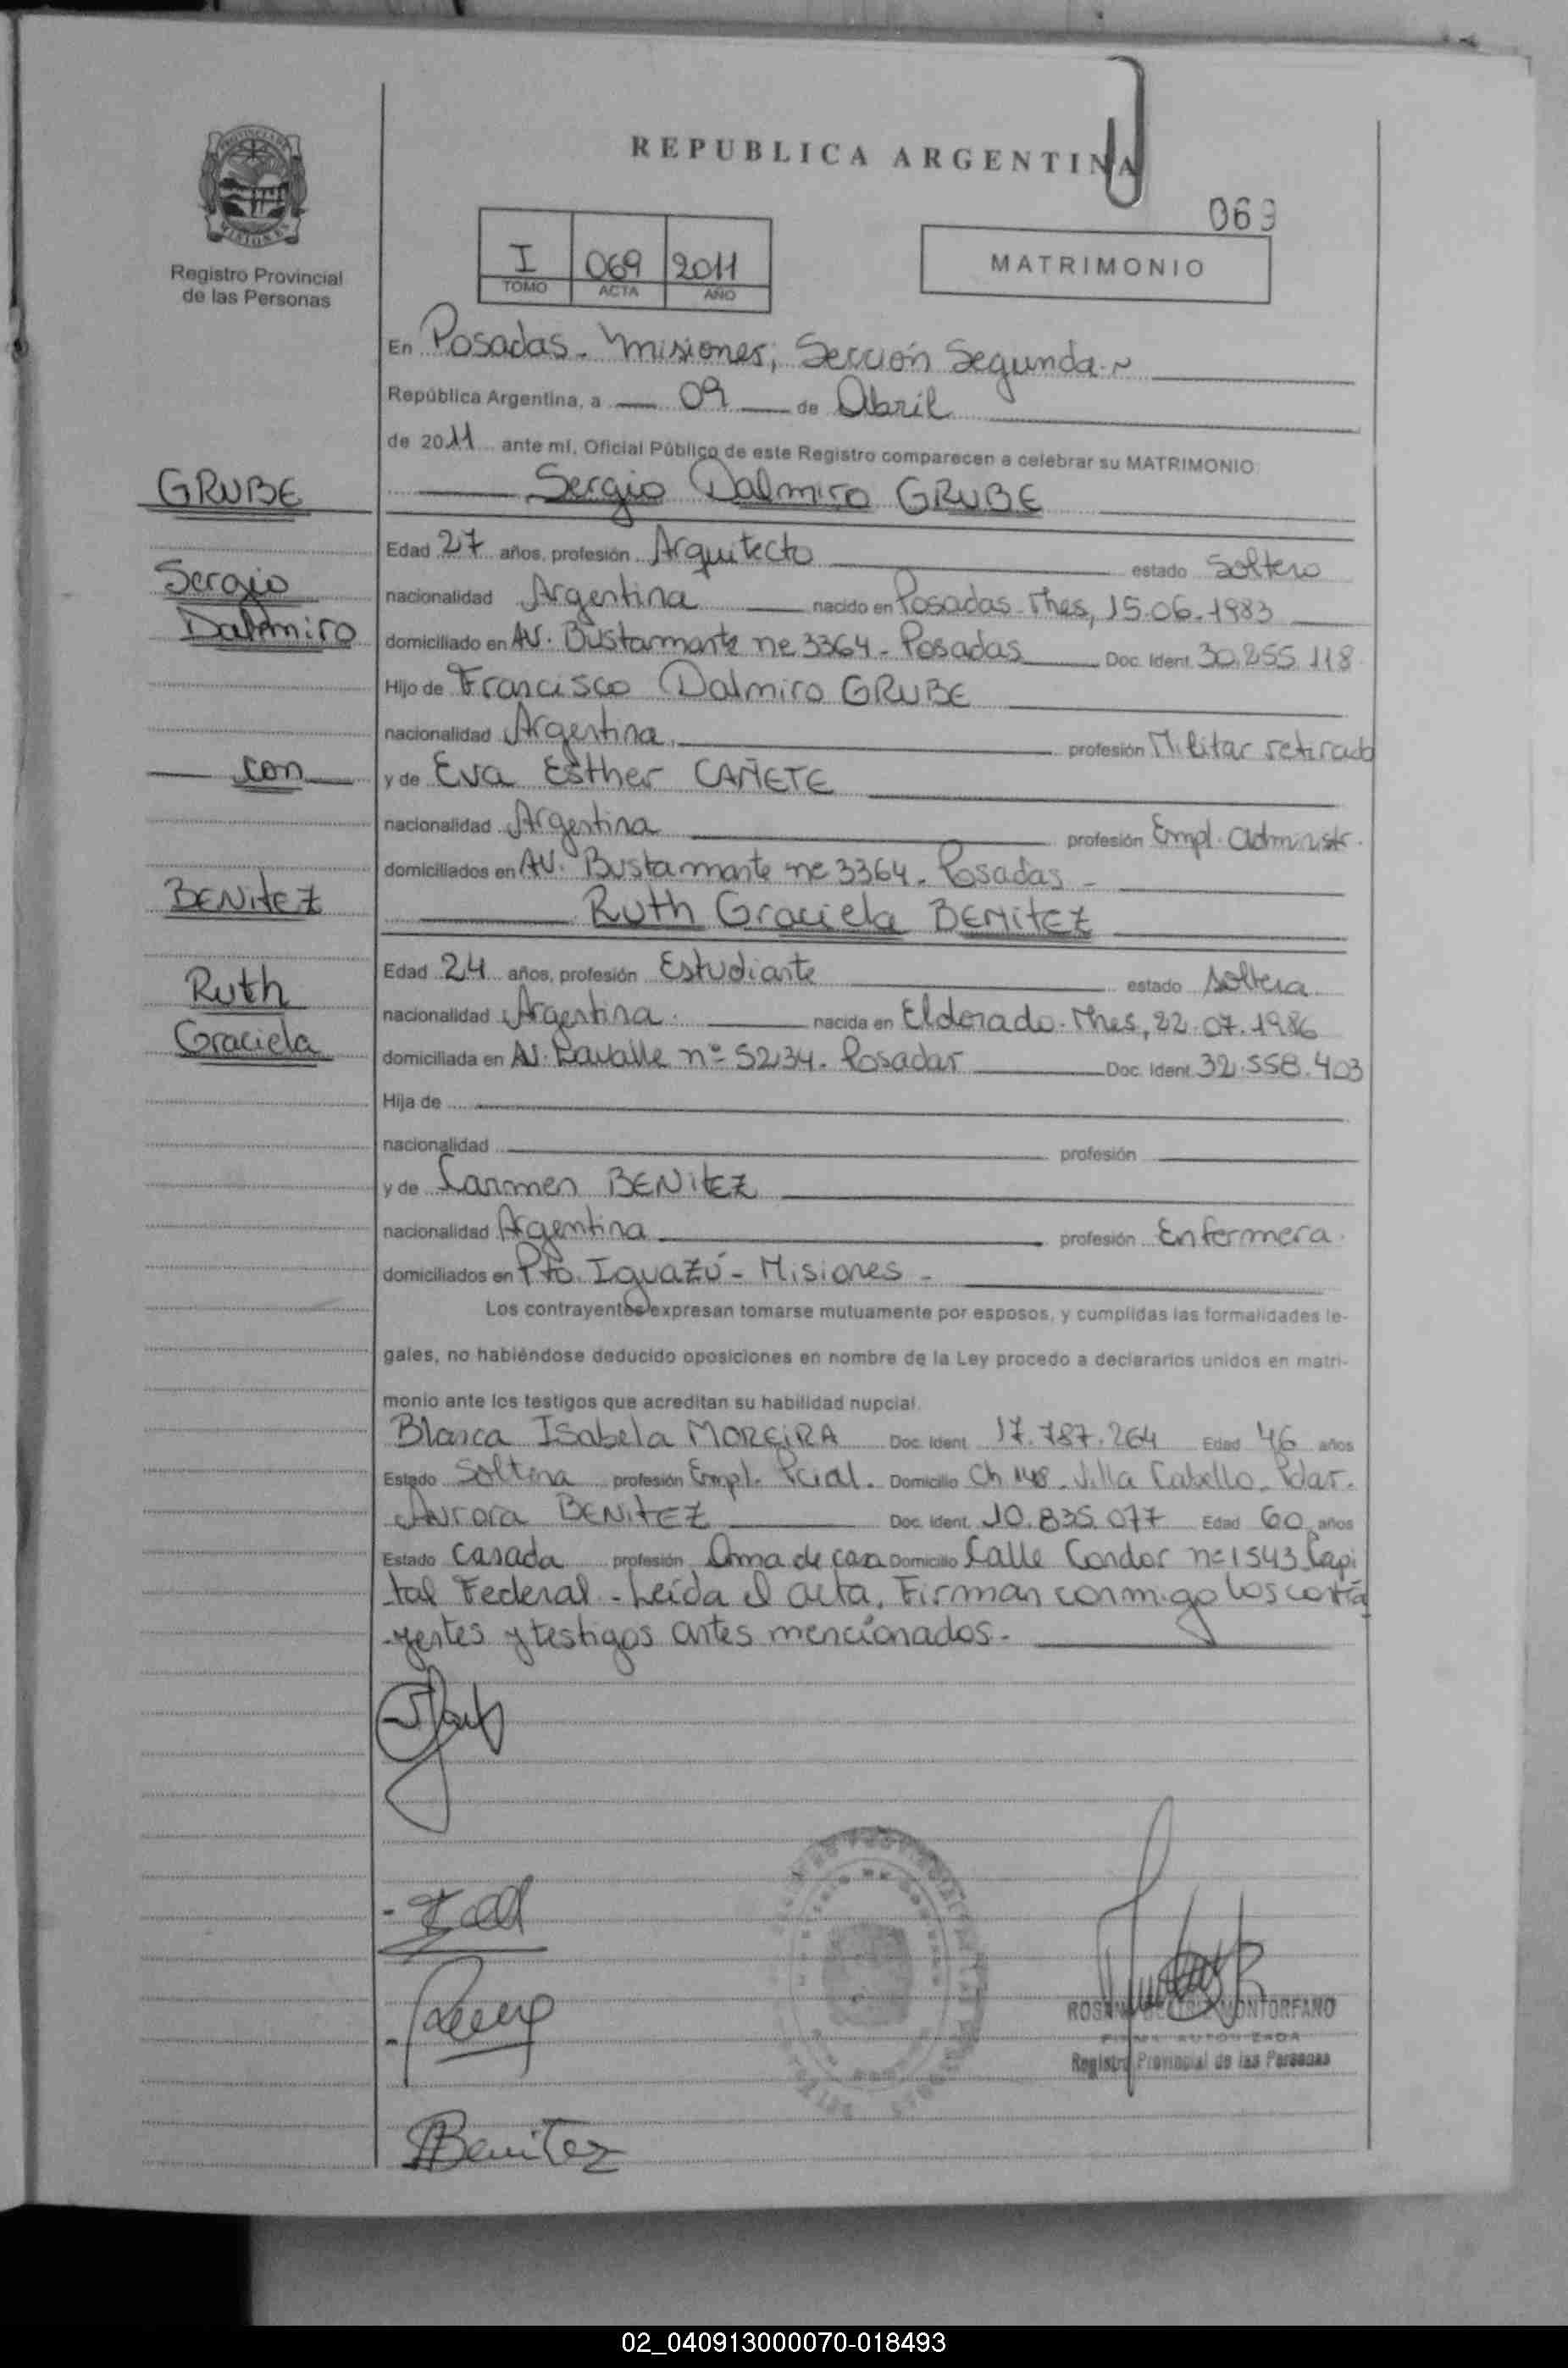 REPUBLICA ARGENTINA
PROVINCIA DE MISIONES
Registro Provincial
de las Personas
069
I 069 2011
TOMO ACTA AÑO
MATRIMONIO
En Posadas - Misiones, Sección Segunda.~
República Argentina, a 09 de Abril
de 2011 ante mí, Oficial Público de este Registro comparecen a celebrar su MATRIMONIO:
GRUBE
Sergio Dalmiro GRUBE
Edad 27 años, profesión Arquitecto estado Soltero
Sergio
nacionalidad Argentina nacido en Posadas - Mnes, 15.06.1983
Dalmiro
domiciliado en AV. Bustamante nº 3364 - Posadas Doc. Ident. 30.255.118
Hijo de Francisco Dalmiro GRUBE
nacionalidad Argentina. profesión Militar retirado
con
y de Eva Esther CAÑETE
nacionalidad Argentina profesión Empl. administr.
domiciliados en AV. Bustamante nº 3364 - Posadas -
BENITEZ
Ruth Graciela BENITEZ
Edad 24 años, profesión Estudiante estado Soltera
Ruth
nacionalidad Argentina. nacida en Eldorado - Mnes, 22.07.1986
Graciela
domiciliada en Av. Lavalle nº 5234 - Posadas Doc. Ident. 32.558.403
Hija de
nacionalidad profesión
y de Carmen BENITEZ
nacionalidad Argentina profesión Enfermera.
domiciliados en Pto. Iguazú - Misiones -
Los contrayentes expresan tomarse mutuamente por esposos, y cumplidas las formalidades le-
gales, no habiéndose deducido oposiciones en nombre de la Ley procedo a declararlos unidos en matri-
monio ante los testigos que acreditan su habilidad nupcial.
Blanca Isabela MOREIRA Doc. Ident. 17.787.264 Edad 46 años
Estado Soltera profesión Empl. Pcial. Domicilio Ch 148 - Villa Cabello - Pdas.
Aurora BENITEZ Doc. Ident. 10.835.077 Edad 60 años
Estado Casada profesión Ama de casa Domicilio Calle Condor nº 1543 Capi
tal Federal - Leída el acta, Firman conmigo los contra
-yentes y testigos antes mencionados -
ABenitez
MONTORFANO
FIRMA AUTORIZADA
Registro Provincial de las Personas
02_040913000070-018493